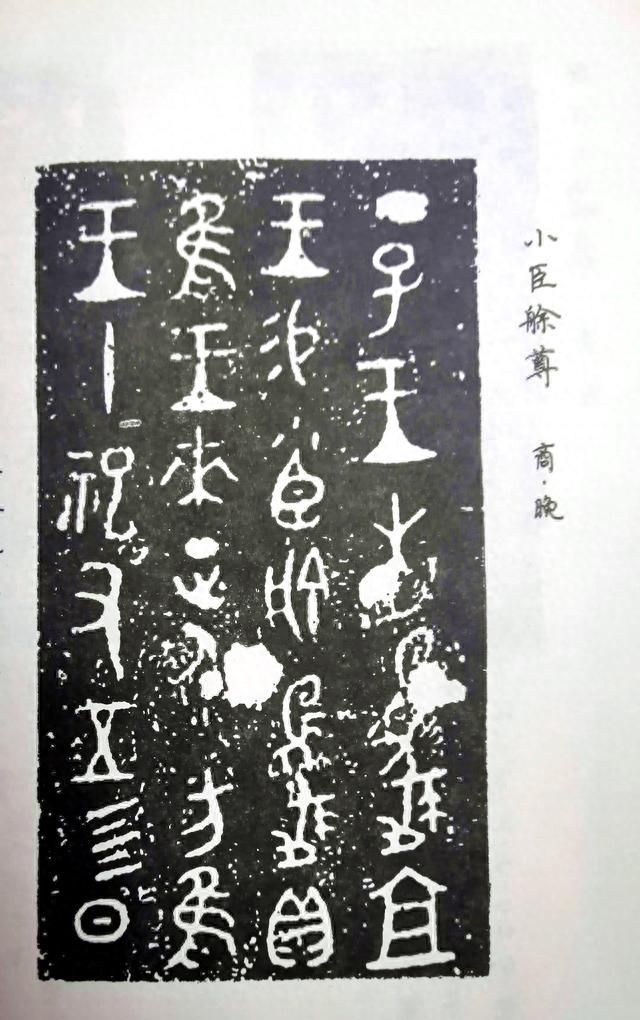 小臣艅尊 商·晚
丁巳王省夔且
王易小臣艅夔貝
隹王來正人方隹
王十祀又五彡日